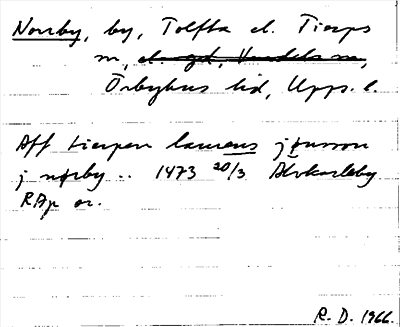 Norrby, by, Tolfta el. Tierps
m, el. gd, Vendels m,
Örbyhus hd, Upps. l.
Aff tierpen laurens jønsson
j nørby .. 1473 20/3 Älvkarleby
RAp or.
R. D. 1966.